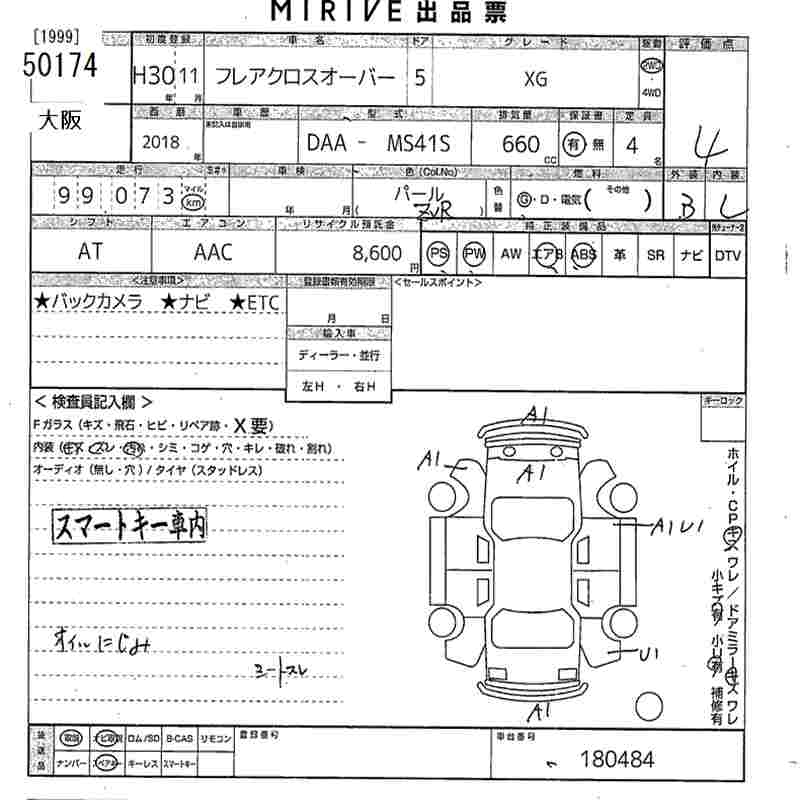 MIRIVE 出品票
[1999]
50174
大阪
初度登録 車名 ドア グレード 駆動 評価点
H30 11 フレアクロスオーバー 5 XG 2WD
年 月 4WD
西暦 車歴 型式 排気量 保証書 定員
未記入は自家用
2018 年 DAA - MS41S 660 cc 有 無 4 名 4
走行 車検 色(Col.No) 燃料 外装 内装
99 073 マイル km 年 月 パール ZVR 色替 G・D・電気( その他 ) B L
シフト エアコン リサイクル預託金 純正装備品
AT AAC 8,600 円 PS PW AW エアB ABS 革 SR ナビ DTV
<注意事項> 登録書類有効期限 <セールスポイント>
★バックカメラ ★ナビ ★ETC
月 日
輸入車
ディーラー・並行
左H ・ 右H
< 検査員記入欄 >
Fガラス (キズ・飛石・ヒビ・リペア跡・X要)
内装 (キズ・スレ・汚れ・シミ・コゲ・穴・キレ・破れ・割れ)
オーディオ (無し・穴) / タイヤ (スタッドレス)
スマートキー車内
オイルにじみ
シートスレ
キーロック
A1
A1
A1
A1U1
U1
A1
ホイル・CPキズワレ/ドアミラーキズワレ
小キズ有 小U有 補修有
装送品 取説 ナビ取説 ロム/SD B-CAS リモコン 登録番号 車台番号
ナンバー スペアキー キーレス スマートキー 180484